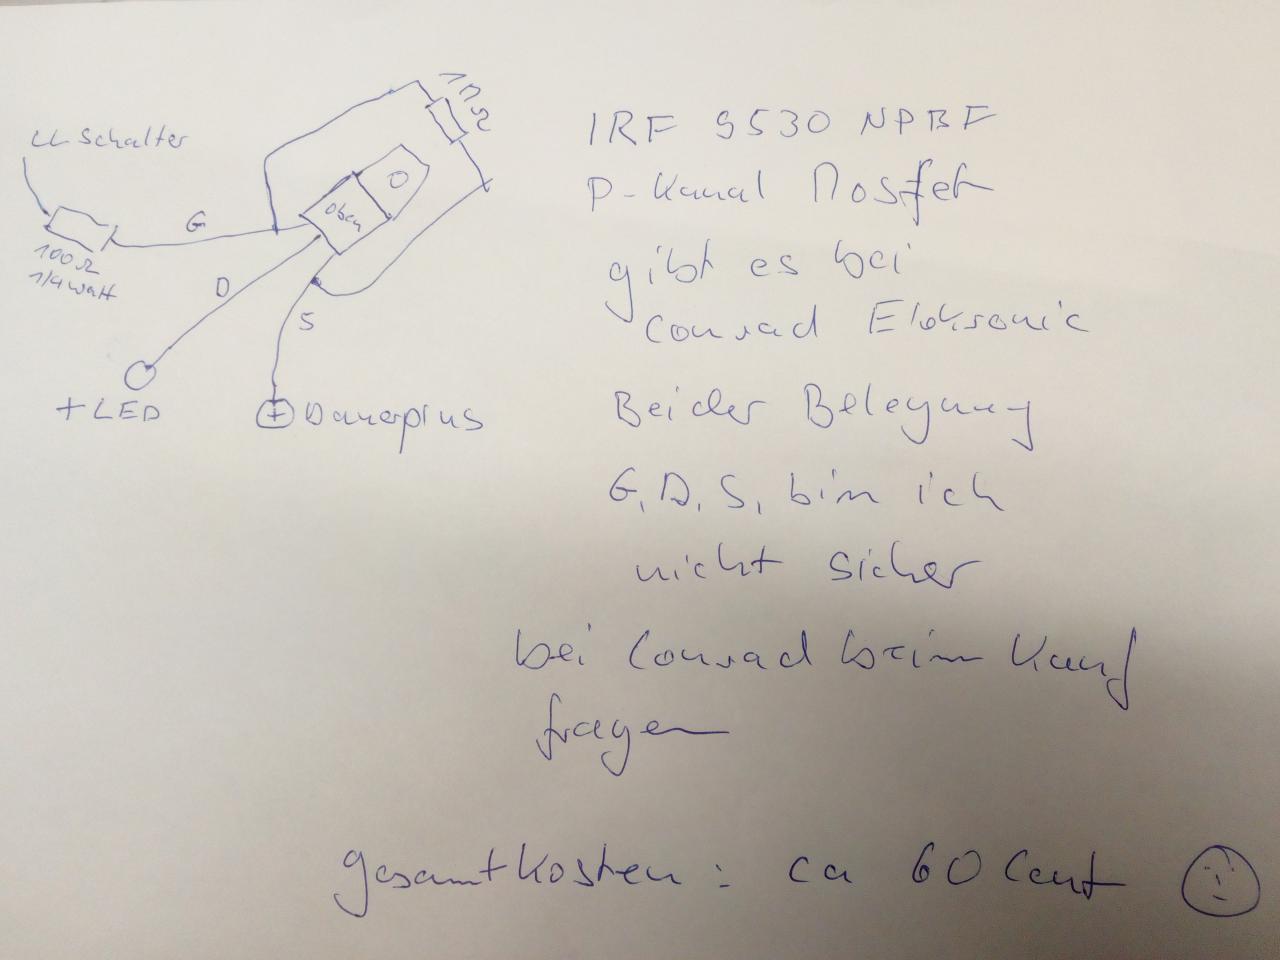 LL Schalter
G
100Ω
1/4 Watt
D
S
oben
+ LED
+ Dauerplus
IRF 9530 NPBF
P-Kanal Mosfet
gibt es bei
Conrad Elektronic
Bei der Belegung
G, D, S, bin ich
nicht sicher
bei Conrad beim Kauf
fragen
gesamtkosten : ca 60 Cent